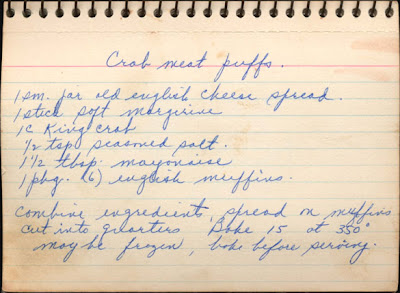 Crab meat puffs.
1 sm. jar old english cheese spread.
1 stick soft margirine
1 c King crab
1/2 tsp seasoned salt.
1 1/2 tbsp. mayonaise
1 pkg. (6) english muffins.
Combine ingredients, spread on muffins
cut into quarters Bake 15 at 350°
may be frozen, bake before serving.